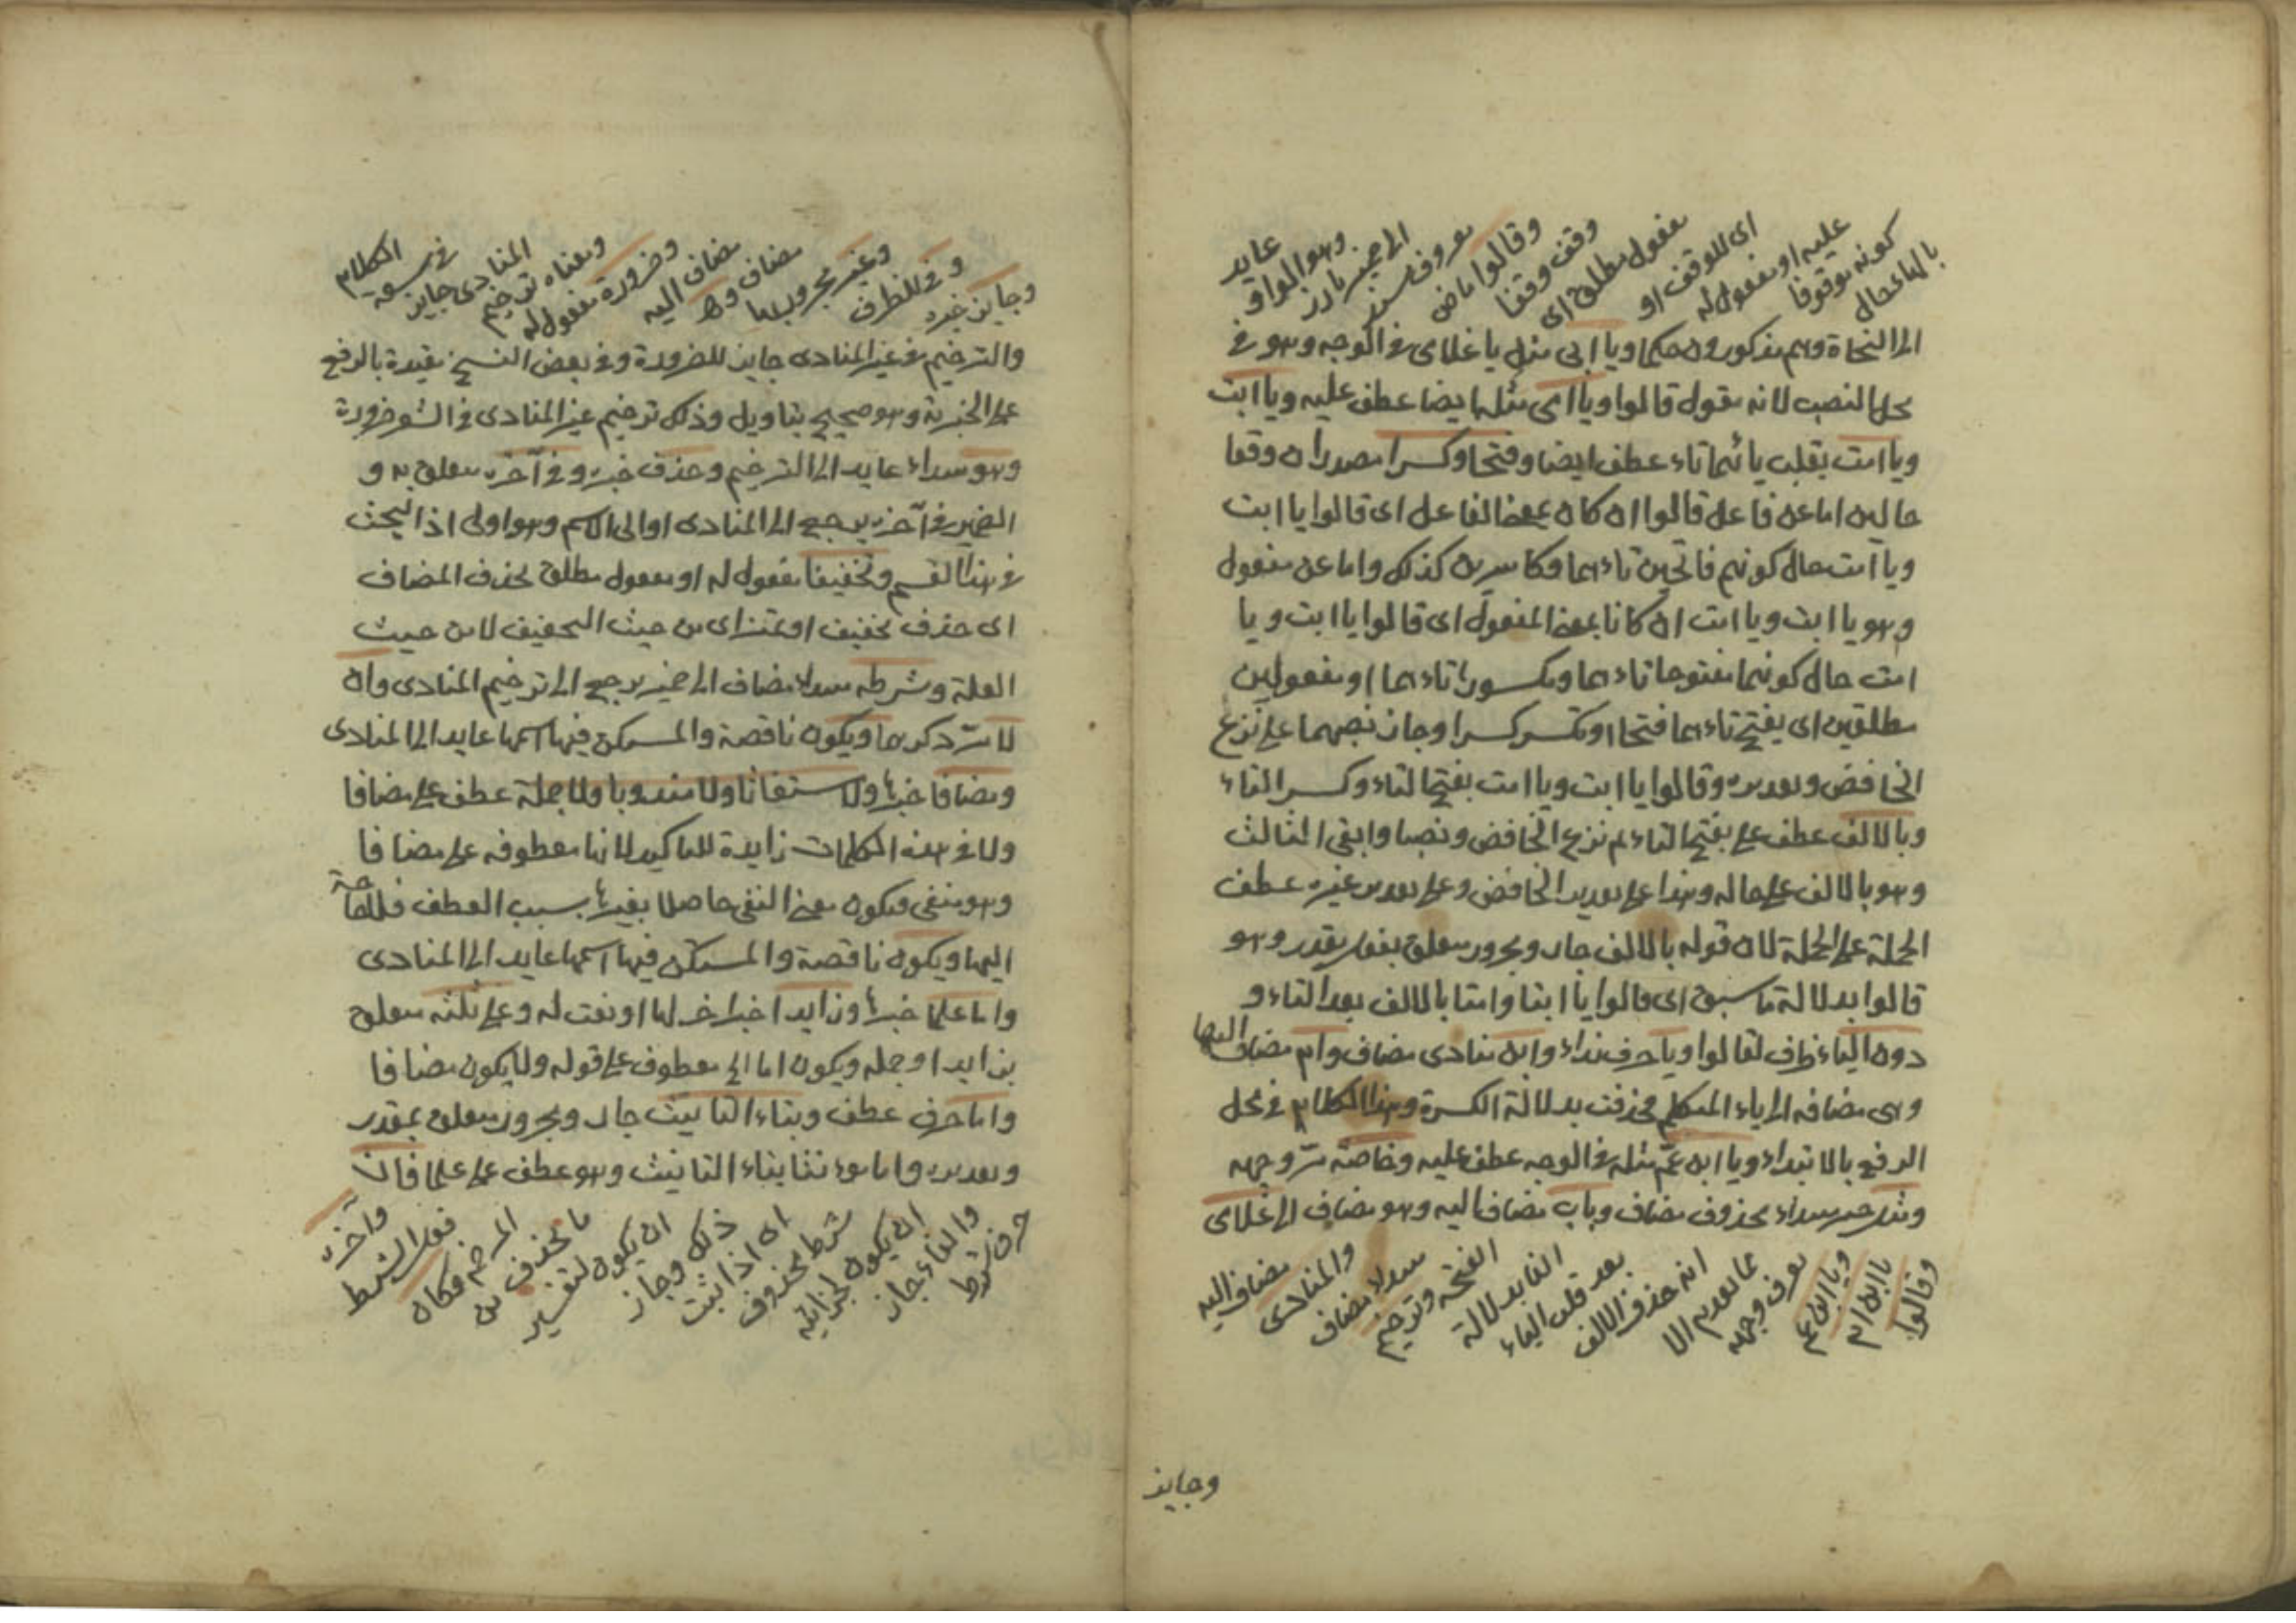 بالهاء حال
كونه موقوفا
عليه او مفعول له
اى للوقف او
مفعول مطلق اى
وقف وقفا
وقالوا ماض
معروف مسند
الى ضمير بارز
وهو الواو
عايد
الى النحاة وهم مذكورون حكما ويا ابى مثل يا غلامى فى الوجه وهو فى
محل النصب لانه مقول قالوا ويا امى مثله ايضا عطف عليه ويا ابت
ويا امت بقلب يائهما تاء عطف ايضا وفتحا وكسرا مصدران وقعا
حالين اما عن فاعل قالوا ان كان بمعنى الفاعل اى قالوا يا ابت
ويا امت حال كونهم فاتحين تاءهما وكاسرين كذلك واما عن مفعول
وهو يا ابت ويا امت ان كانا بمعنى المفعول اى قالوا يا ابت ويا
امت حال كونهما مفتوحا تاءهما ومكسورا تاءهما او مفعولين
مطلقين اى يفتح تاءهما فتحا او تكسر كسرا وجاز نصبهما على نزع
الخافض وتقديره وقالوا يا ابت ويا امت بفتح التاء وكسر التاء
وبالالف عطف على بفتح التاء ثم نزع الخافض ونصبا وابقى الثالث
وهو بالالف على حاله وهذا على تقدير الخافض وعلى تقدير غيره عطف
الجملة على الجملة لان قوله بالالف جار ومجرور متعلق بفعل مقدر وهو
قالوا بدلالة ما سبق اى قالوا يا ابتا وامتا بالالف بعد التاء و
دون الياء ظرف لقالوا ويا حرف نداء وابن منادى مضاف وام مضاف اليها
وهى مضافه الى ياء المتكلم فحذفت بدلالة الكسرة وهذا الكلام فى محل
الرفع بالابتداء ويا ابن عم مثله فى الوجه عطف عليه وخاصة مر وجهه
ومثل خبر مبتداء محذوف مضاف وباب مضاف اليه وهو مضاف الى غلامى
وقالوا
يا ابن ام
ويا ابن عم
يعرف وجهه
مما تقدم الا
انه حذف الالف
بعد قلب الياء
الفا بدلالة
الفتحه وترخيم
مبتداء مضاف
والمنادى
مضاف اليه
وجايز
وجايز خبره
وفى للظرف
وغير مجرور بها
مضاف وهو
مضاف اليه
وضرورة مفعول له
ومعناه ترخيم
المنادى جايز
فى سعة
الكلام
والترخيم فى غير المنادى جايز للضرورة وفى بعض النسخ مقيدة بالرفع
على الخبرية وهو صحيح بتاويل وذلك ترخيم غير المنادى فى الشعر ضرورة
وهو مبتداء عايد الى الترخيم وحذف خبره وفى آخره متعلق به و
الضمير فى آخره يرجع الى المنادى او الى الاسم وهو اولى اذ البحث
فى هذا القسم وتخفيفا مفعول له او مفعول مطلق بحذف المضاف
اى حذف تخفيف او تمييز اى من حيث التخفيف لا من حيث
العلة وشرطه مبتداء مضاف الى ضمير يرجع الى ترخيم المنادى وان
لا مر ذكرها ويكون ناقصة والمستكن فيها اسمها عايد الى المنادى
ومضافا خبرها ولا مستغاثا ولا مندوبا ولا جملة عطف على مضافا
ولا فى هذه الكلمات زايدة للتاكيد لانها معطوفه على مضافا
وهو منفى فيكون معنى النفى حاصلا بغيرها بسبب العطف فلا حاجة
اليها ويكون ناقصة والمستكن فيها اسمها عايد الى المنادى
واما علما خبرها وزايدا خبر اخر لها او نعت له وعلى ثلثه متعلق
بزايدا وجمله ويكون اما الى معطوف على قوله ولا يكون مضافا
واما حرف عطف وبتاء التانيث جار ومجرور متعلق بمقدر
وتقديره واما مونثا بتاء التانيث وهو عطف على علما فان
حرف شرط
والفاء جاز
ان يكون لجزائيه
شرط محذوف
اى اذا ثبت
ذلك وجاز
ان يكون لتفسير
ما يحذف من
المرخم فكان
فعل الشرط
وآخره